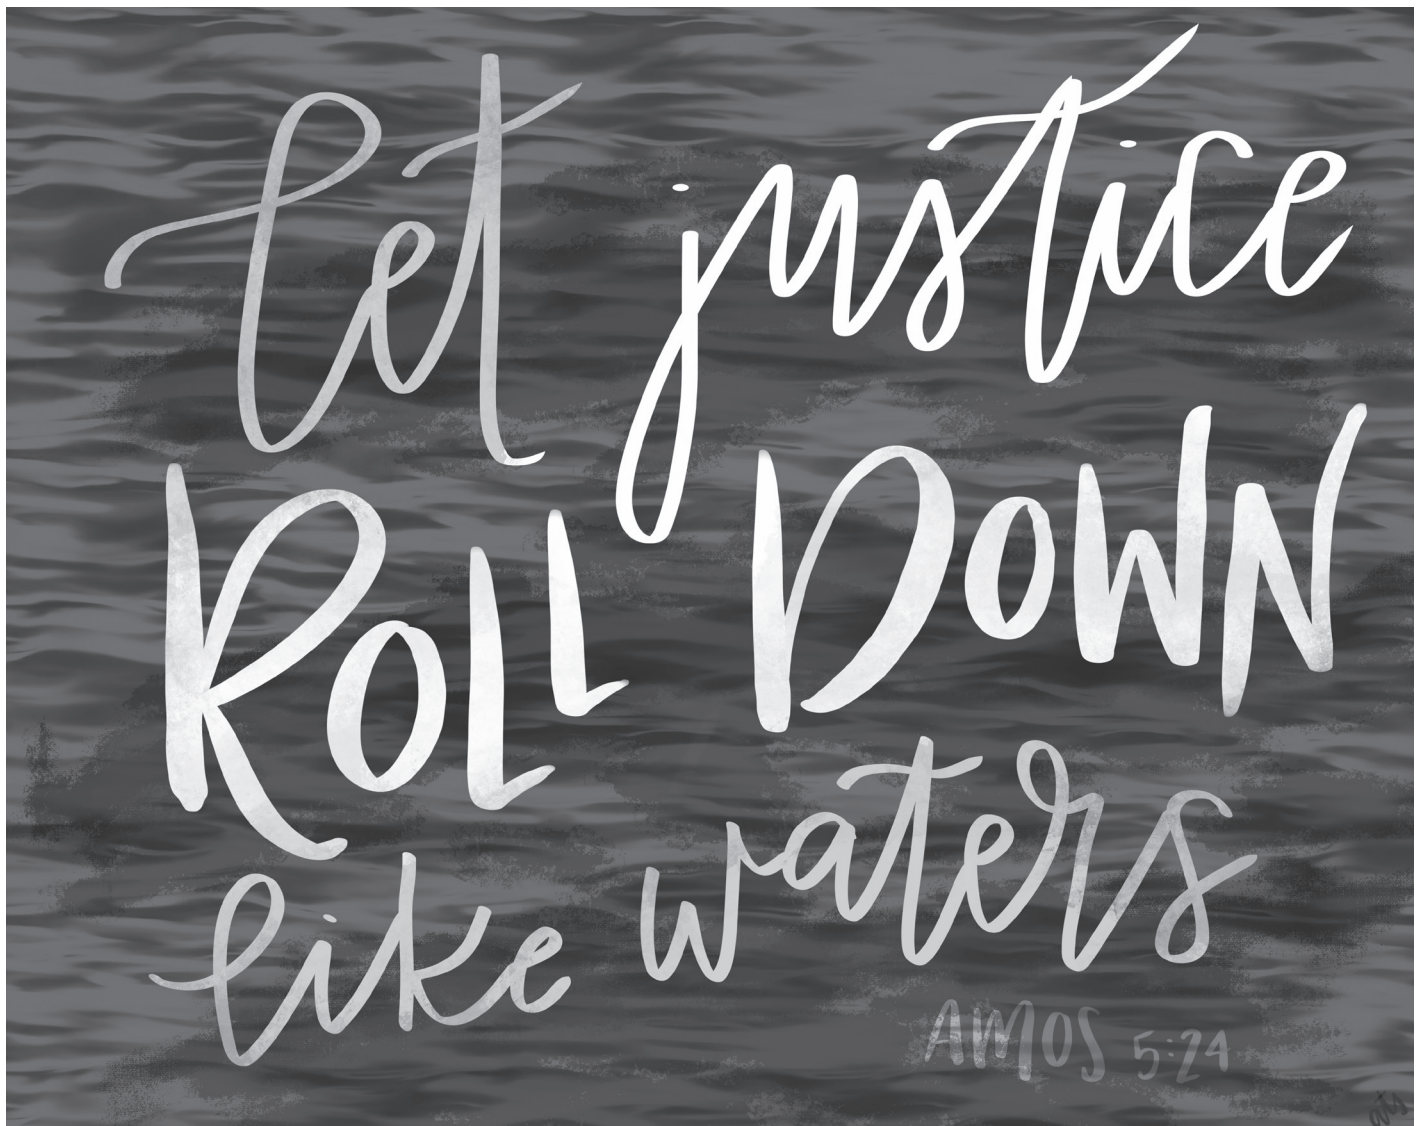 let justice
ROLL DOWN
like waters
AMOS 5:24